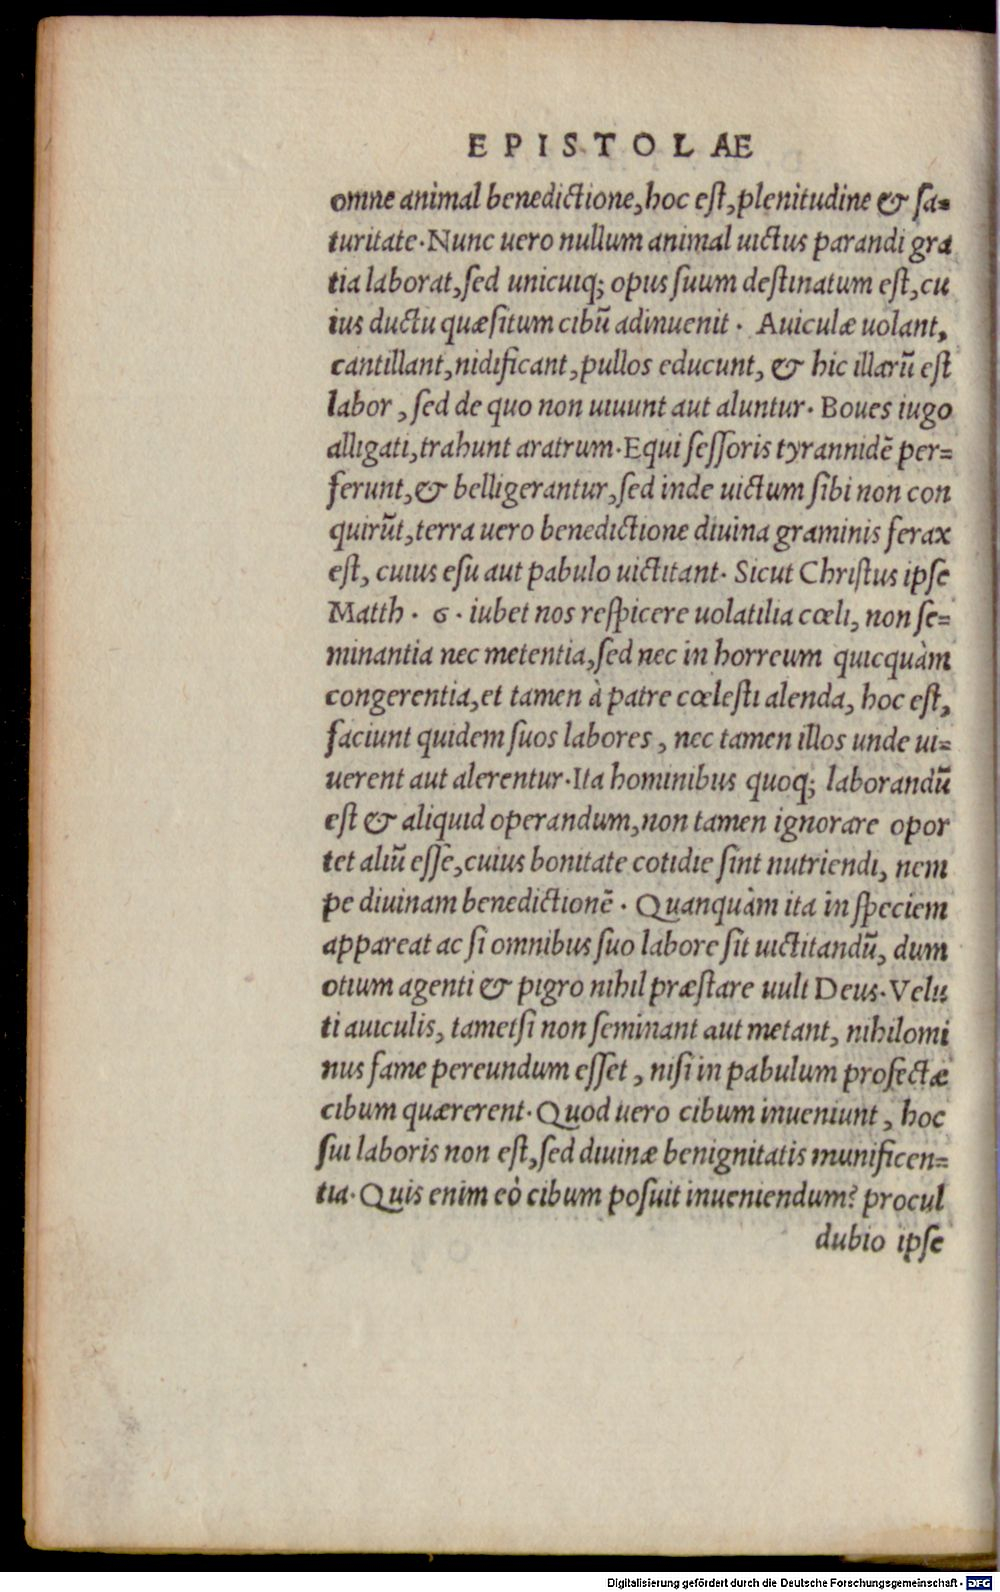 EPISTOLAE
omne animal benedictione, hoc est, plenitudine & sa=
turitate. Nunc uero nullum animal uictus parandi gra
tia laborat, sed unicuiq; opus suum destinatum est, cu
ius ductu quæsitum cibū adinuenit. Auiculæ uolant,
cantillant, nidificant, pullos educunt, & hic illarū est
labor, sed de quo non uiuunt aut aluntur. Boues iugo
alligati, trahunt aratrum. Equi sessoris tyrannidē per=
ferunt, & belligerantur, sed inde uictum sibi non con
quirūt, terra uero benedictione diuina graminis ferax
est, cuius esu aut pabulo uictitant. Sicut Christus ipse
Matth. 6. iubet nos respicere uolatilia cœli, non se=
minantia nec metentia, sed nec in horreum quicquàm
congerentia, et tamen à patre cœlesti alenda, hoc est,
faciunt quidem suos labores, nec tamen illos unde ui=
uerent aut alerentur. Ita hominibus quoq; laborandū
est & aliquid operandum, non tamen ignorare opor
tet aliū esse, cuius bonitate cotidie sint nutriendi, nem
pe diuinam benedictionē. Quanquàm ita in speciem
appareat ac si omnibus suo labore sit uictitandū, dum
otium agenti & pigro nihil præstare uult Deus. Velu
ti auiculis, tametsi non seminant aut metant, nihilomi
nus fame pereundum esset, nisi in pabulum profectæ
cibum quærerent. Quod uero cibum inueniunt, hoc
sui laboris non est, sed diuinæ benignitatis munificen=
tia. Quis enim eò cibum posuit inueniendum? procul
dubio ipse
Digitalisierung gefördert durch die Deutsche Forschungsgemeinschaft - DFG